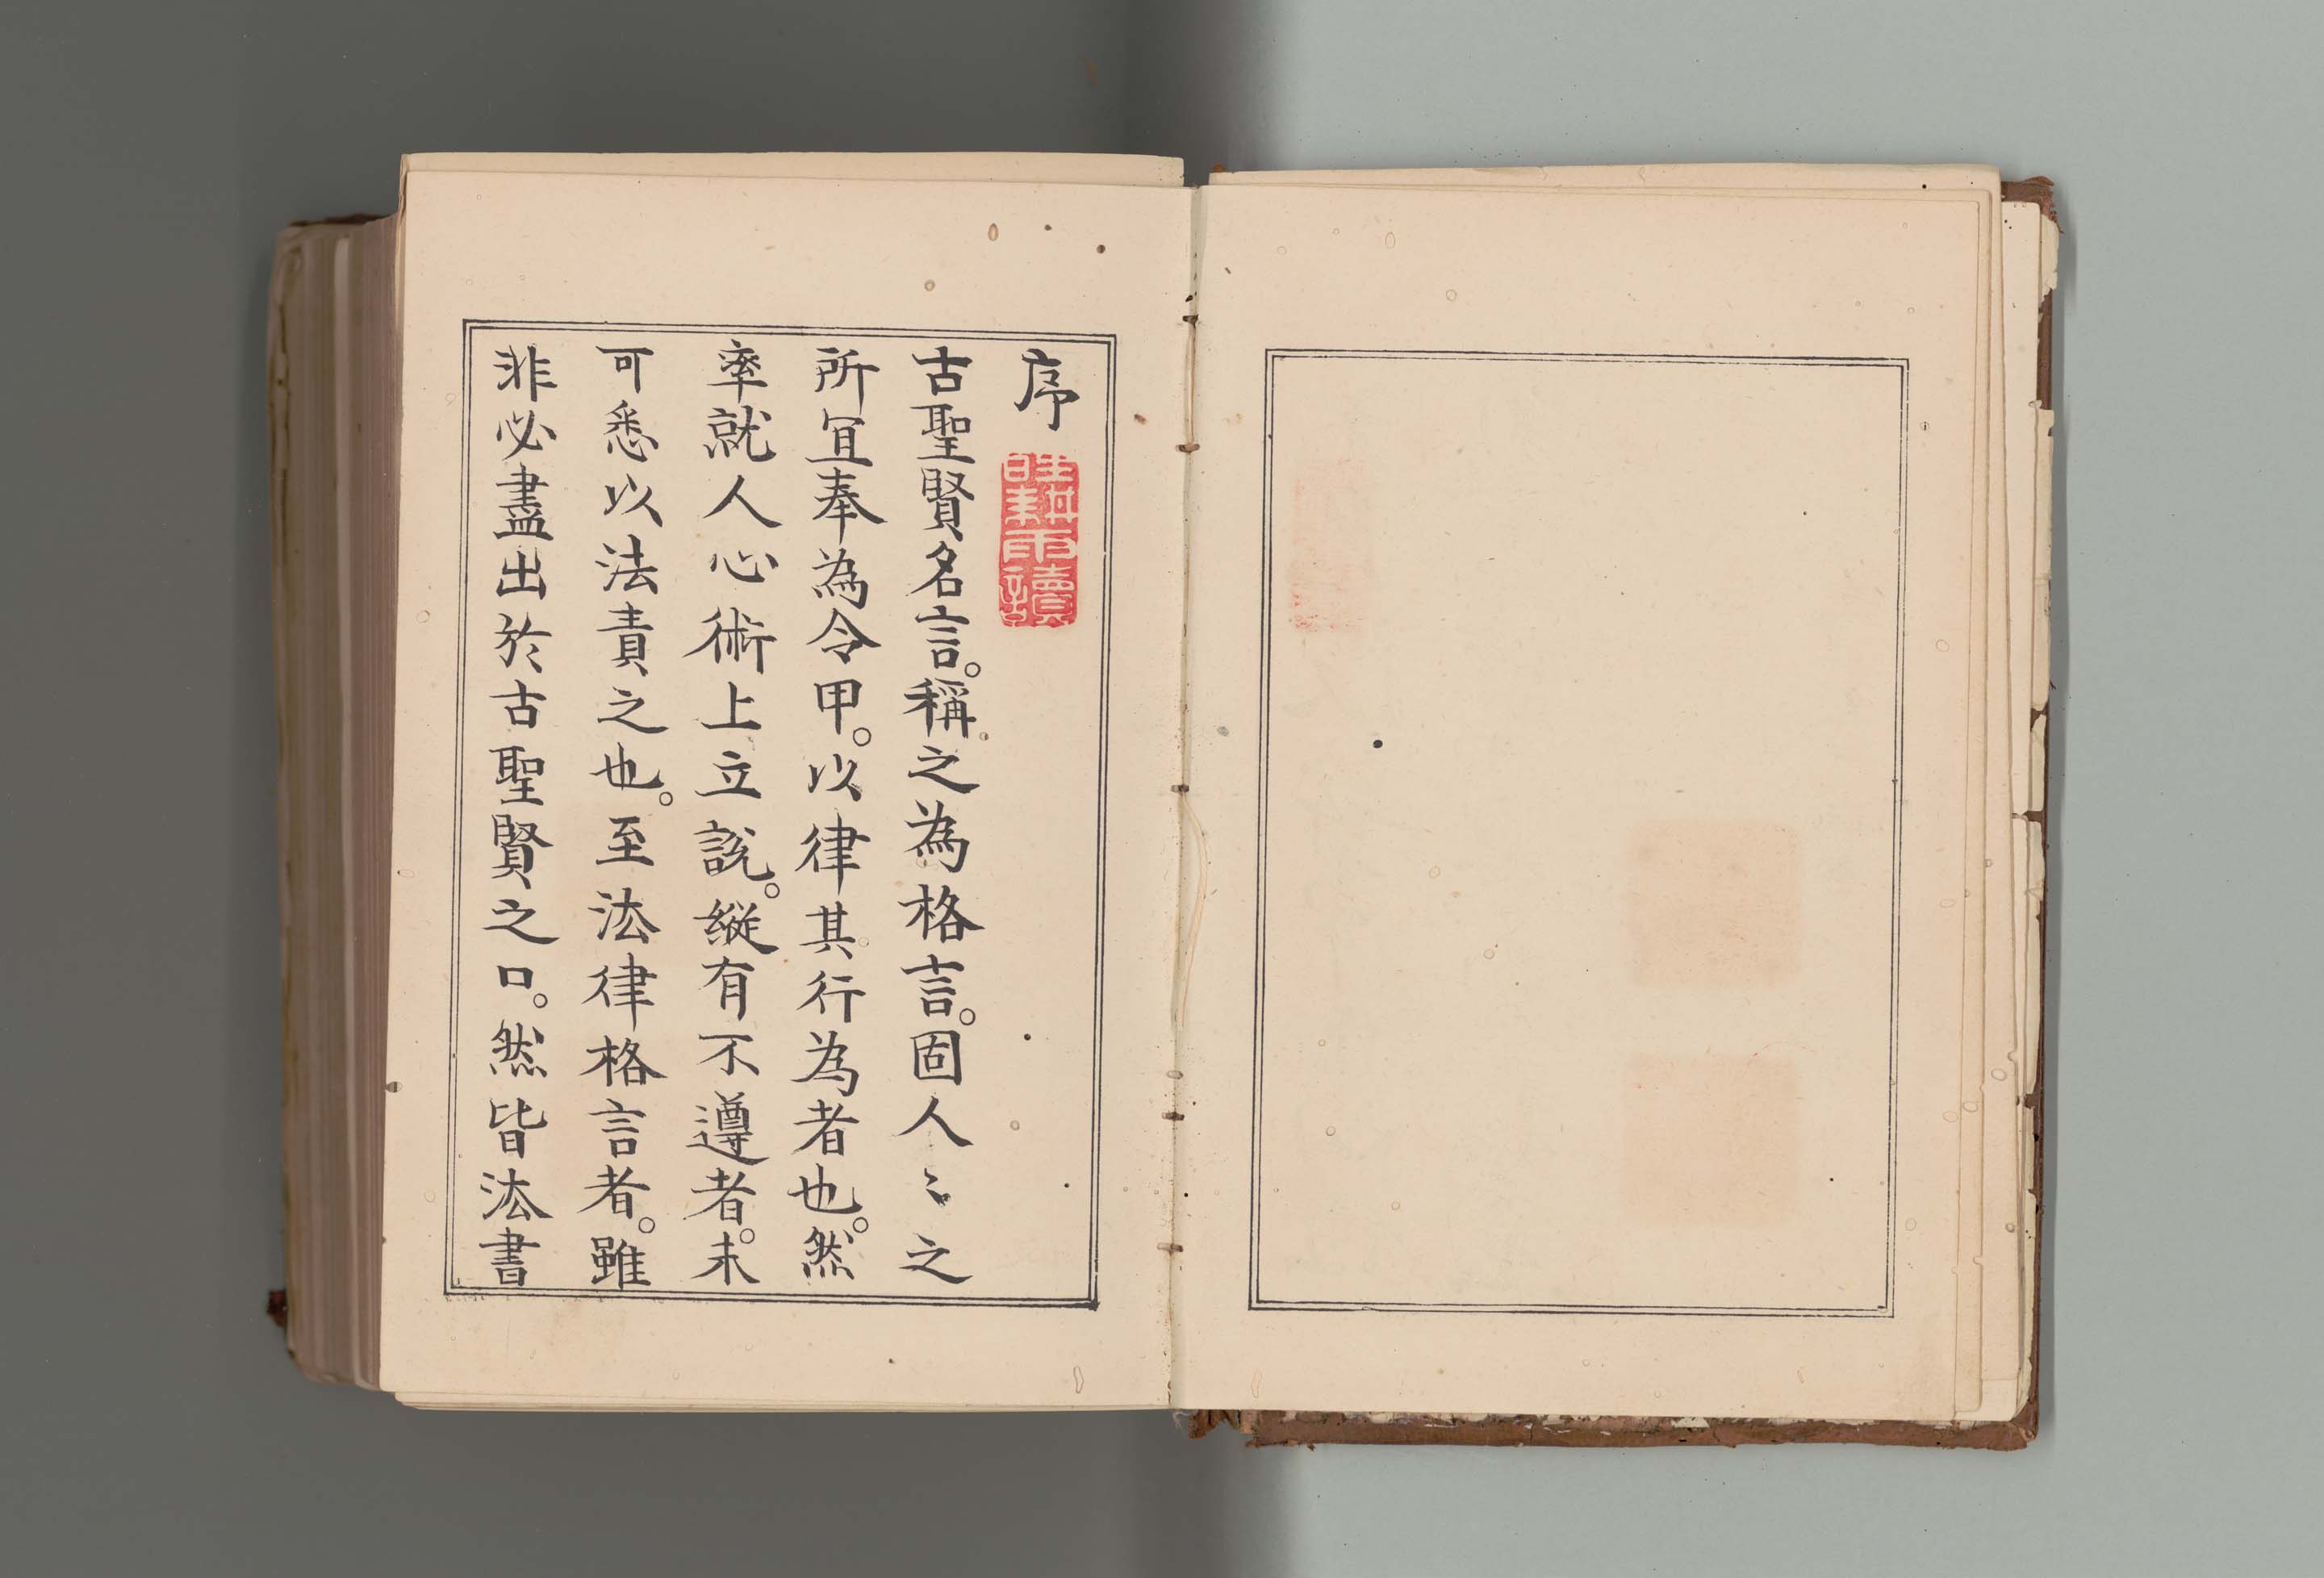 序
晴耕雨讀
古聖賢名言。稱之為格言。固人〻之
所宜奉為令甲。以律其行為者也。然
率就人心術上立說。縱有不遵者。未
可悉以法責之也。至法律格言者。雖
非必盡出於古聖賢之口。然皆法書